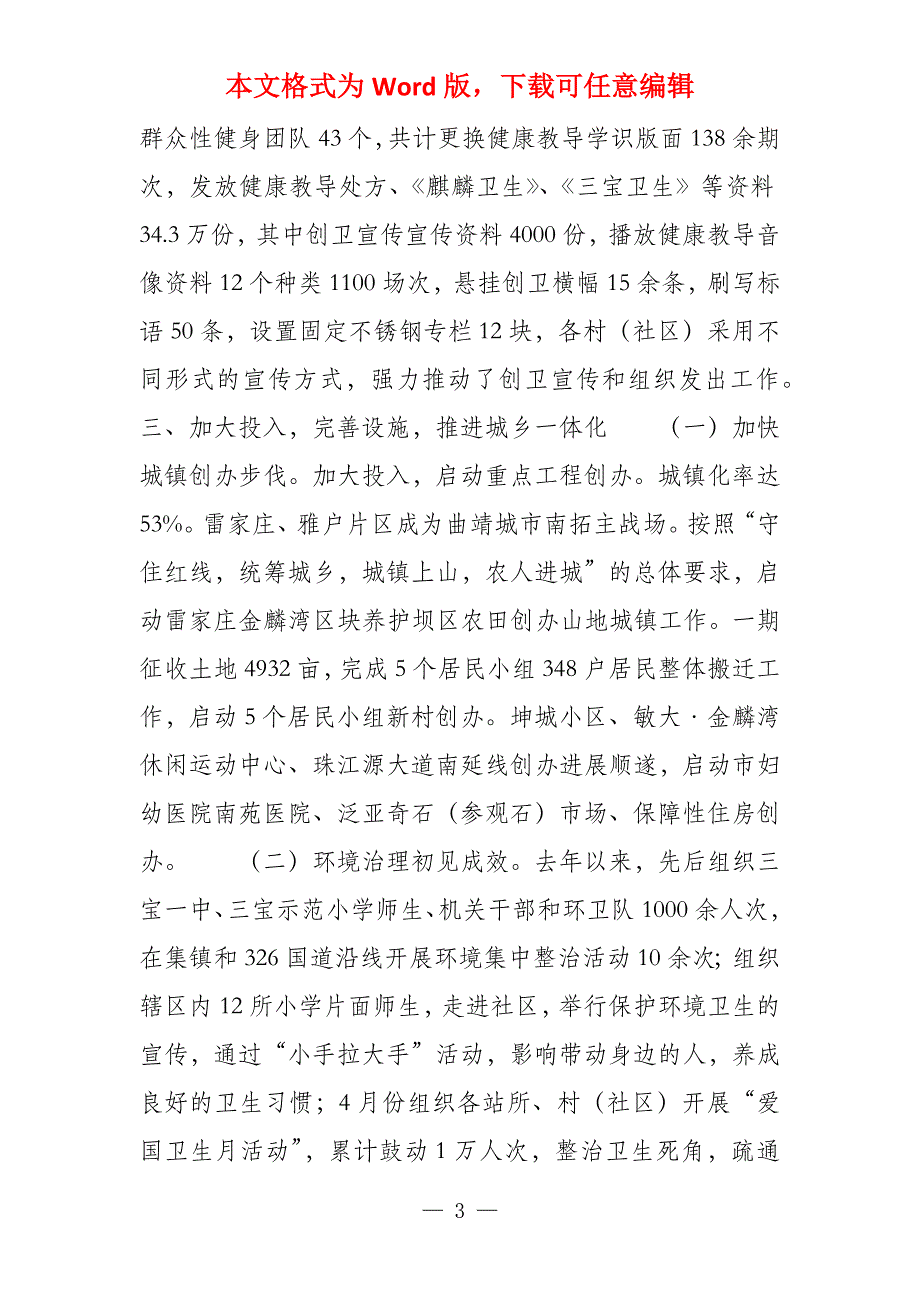 本文格式为 Word 版，下载可任意编辑
群众性健身团队 43 个，共计更换健康教导学识版面 138 余期
次，发放健康教导处方、《麒麟卫生》、《三宝卫生》等资料
34.3 万份，其中创卫宣传宣传资料 4000 份，播放健康教导音
像资料 12 个种类 1100 场次，悬挂创卫横幅 15 余条，刷写标
语 50 条，设置固定不锈钢专栏 12 块，各村（社区）采用不
同形式的宣传方式，强力推动了创卫宣传和组织发出工作。
三、加大投入，完善设施，推进城乡一体化　　（一）加快
城镇创办步伐。加大投入，启动重点工程创办。城镇化率达
53%。雷家庄、雅户片区成为曲靖城市南拓主战场。按照“守
住红线，统筹城乡，城镇上山，农人进城”的总体要求，启
动雷家庄金麟湾区块养护坝区农田创办山地城镇工作。一期
征收土地 4932 亩，完成 5 个居民小组 348 户居民整体搬迁工
作，启动 5 个居民小组新村创办。坤城小区、敏大·金麟湾
休闲运动中心、珠江源大道南延线创办进展顺遂，启动市妇
幼医院南苑医院、泛亚奇石（参观石）市场、保障性住房创
办。　　（二）环境治理初见成效。去年以来，先后组织三
宝一中、三宝示范小学师生、机关干部和环卫队 1000 余人次，
在集镇和 326 国道沿线开展环境集中整治活动 10 余次；组织
辖区内 12 所小学片面师生，走进社区，举行保护环境卫生的
宣传，通过“小手拉大手”活动，影响带动身边的人，养成
良好的卫生习惯；4 月份组织各站所、村（社区）开展“爱
国卫生月活动”，累计鼓动 1 万人次，整治卫生死角，疏通
— 3 —